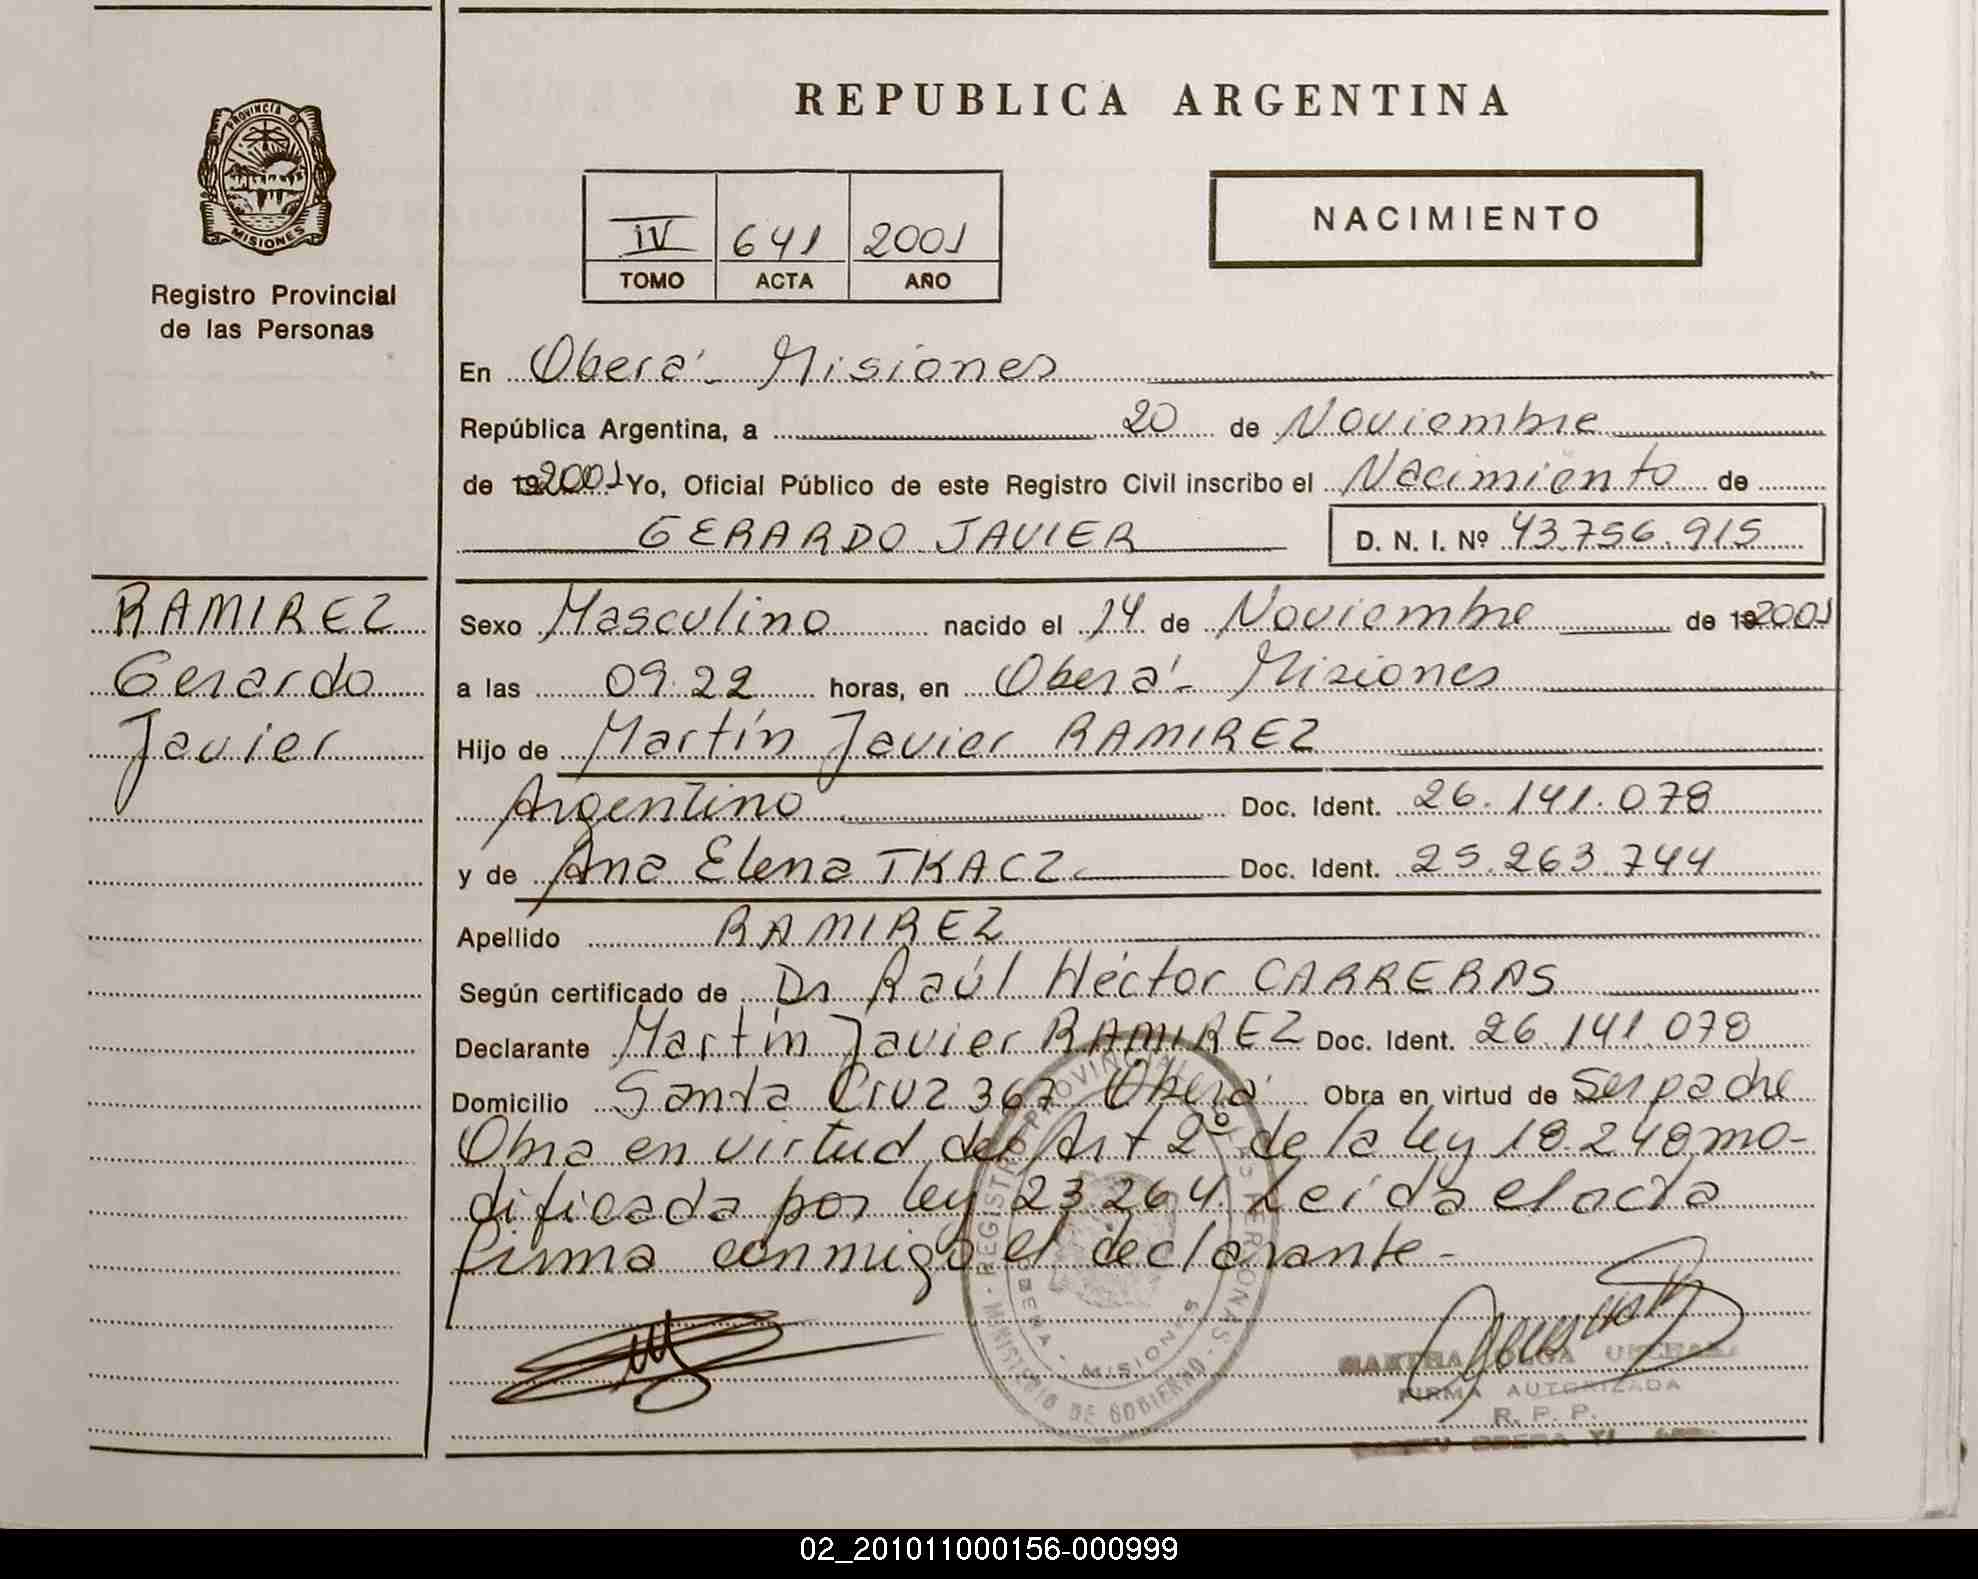 PROVINCIA DE
MISIONES
Registro Provincial
de las Personas
REPUBLICA ARGENTINA
IV 641 2001
TOMO ACTA AÑO
NACIMIENTO
En Oberá - Misiones
República Argentina, a 20 de Noviembre
de 19 2001 Yo, Oficial Público de este Registro Civil inscribo el Nacimiento de
GERARDO JAVIER D. N. I. Nº 43.756.915
RAMIREZ
Gerardo
Javier
Sexo Masculino nacido el 14 de Noviembre de 19 2001
a las 09.22 horas, en Oberá - Misiones
Hijo de Martín Javier RAMIREZ
Argentino Doc. Ident. 26.141.078
y de Ana Elena TKACZ Doc. Ident. 25.263.744
Apellido RAMIREZ
Según certificado de Dr Raúl Héctor CARRERAS
Declarante Martín Javier RAMIREZ Doc. Ident. 26.141.078
Domicilio Santa Cruz 367 Oberá Obra en virtud de Ser padre
Obra en virtud del Art 2º de la ley 18.248 mo-
dificada por ley 23.264. Leída el acta
firma conmigo el declarante -
REGISTRO PROVINCIAL DE LAS PERSONAS
MINISTERIO DE GOBIERNO
OBERA - MISIONES
MARTHA OLGA
FIRMA AUTORIZADA
R. P. P.
OBERA
02_201011000156-000999